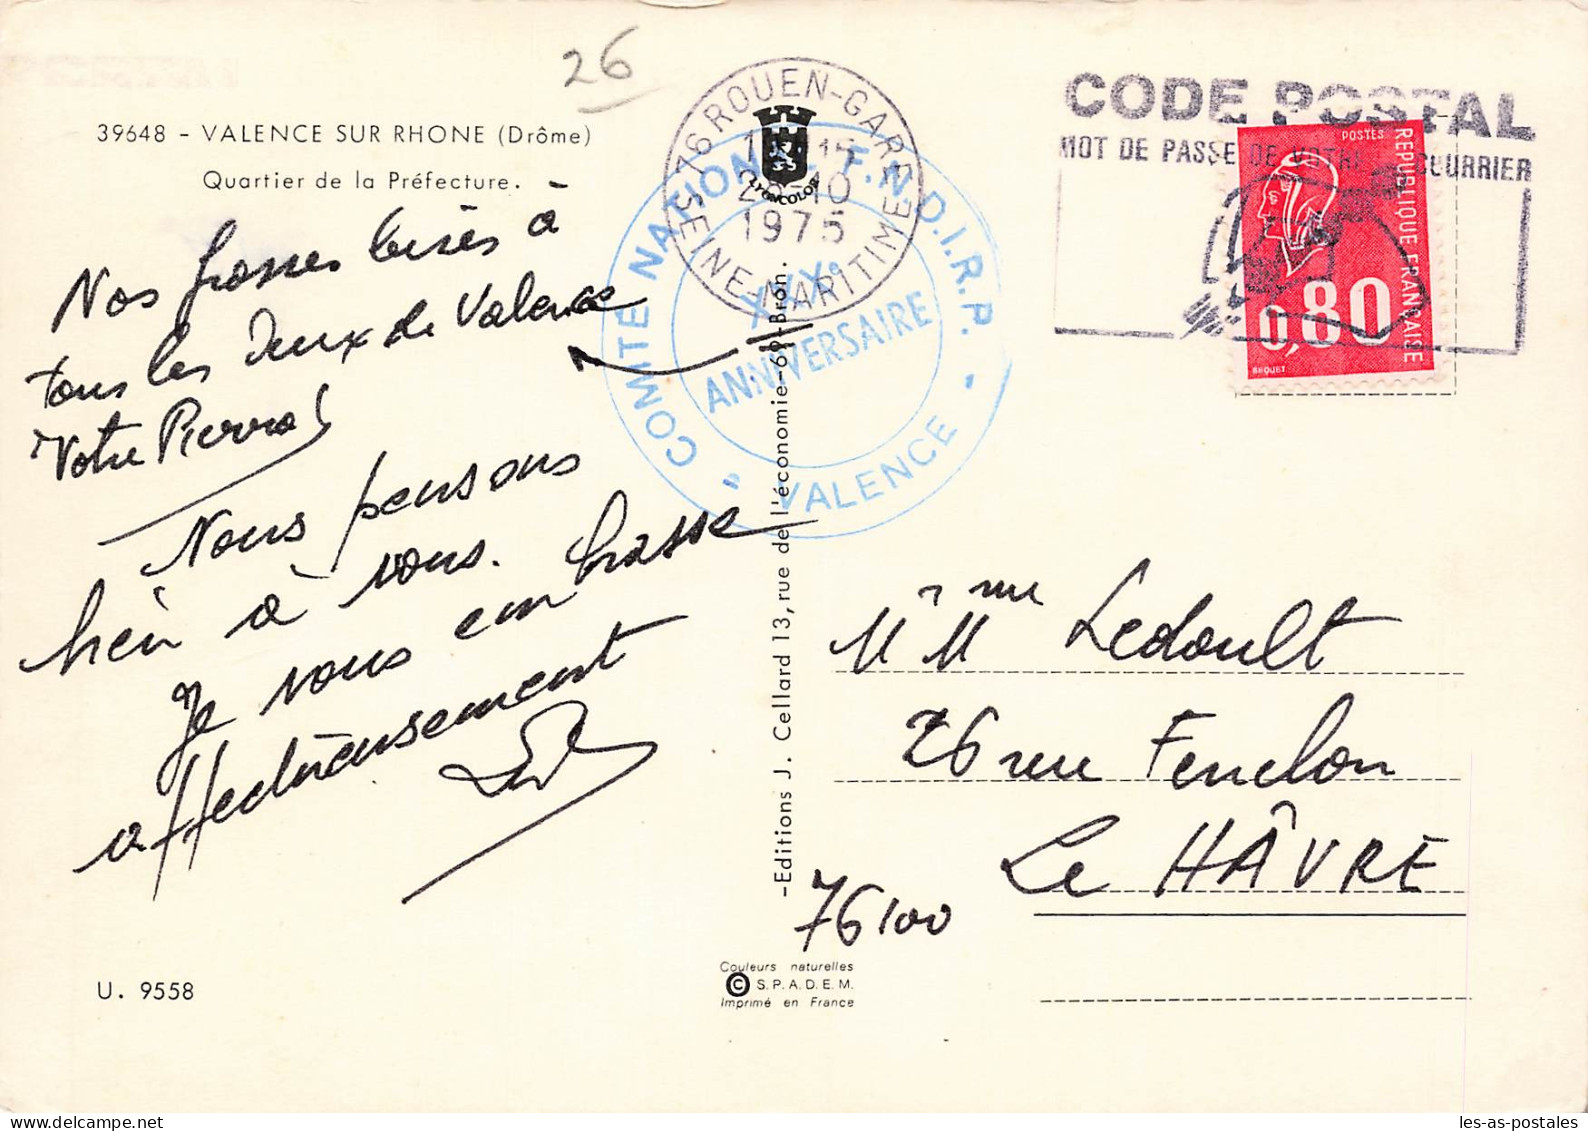 26
39648 - VALENCE SUR RHONE (Drôme)
Quartier de la Préfecture.
Nos grosses bises à
tous les deux de Valence
Votre Pierrot
Nous pensons
bien à vous.
Je vous embrasse
affectueusement
U. 9558
76 ROUEN-GARE
1975
SEINE-MARITIME
LYONCOLOR
COMITÉ NATIONAL F.N.D.I.R.P.
XXX°
ANNIVERSAIRE
" VALENCE "
-Editions J. Cellard 13, rue de l'économie-69-Bron.
Couleurs naturelles
© S.P.A.D.E.M.
Imprimé en France
CODE POSTAL
MOT DE PASSE DE VOTRE COURRIER
POSTES
REPUBLIQUE FRANCAISE
0,80
BEQUET
M Mme Ledoult
26 rue Fenelon
Le HÂVRE
76100
les-as-postales